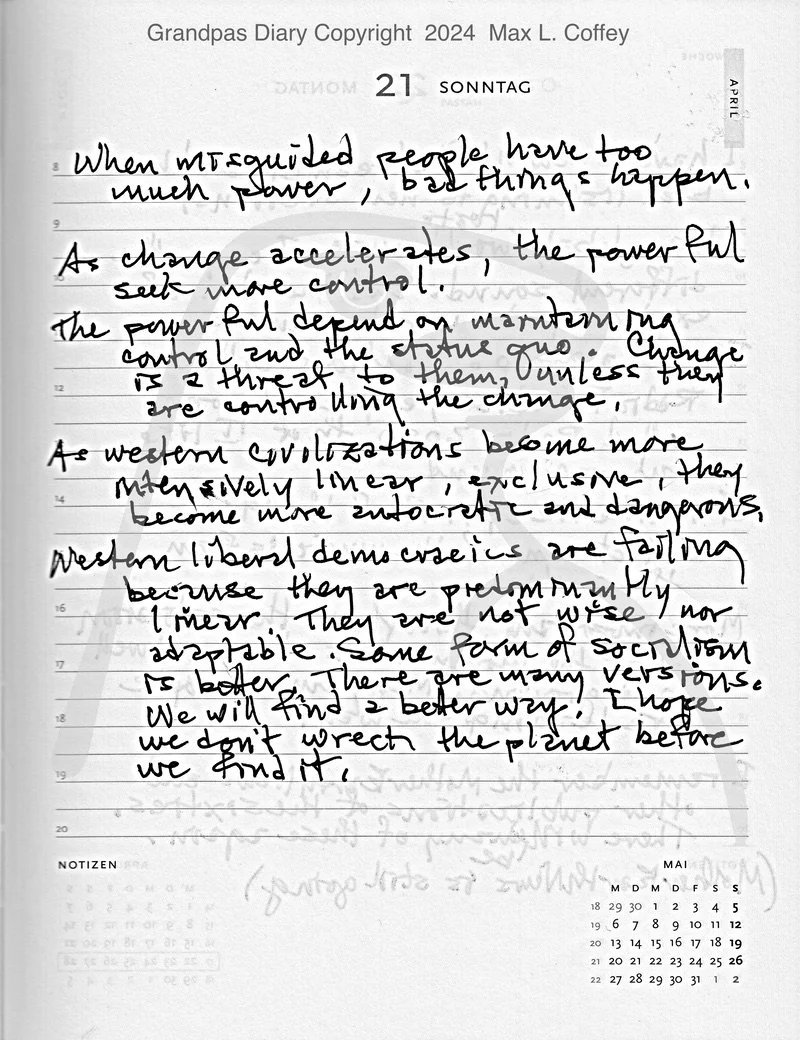 Grandpas Diary Copyright 2024 Max L. Coffey
21 SONNTAG
APRIL
8 When misguided people have too
much power, bad things happen.
9
As change accelerates, the powerful
seek more control.
The powerful depend on maintaining
control and the status quo. Change
12 is a threat to them, unless they
are controlling the change.
As western civilizations become more
intensively linear, exclusive, they
14 become more autocratic and dangerous.
Western liberal democracies are failing
because they are predominantly
16 linear. They are not wise, nor
adaptable. Some form of socialism
17 is better. There are many versions.
18 We will find a better way. I hope
we don't wrech the planet before
19 we find it.
20
NOTIZEN
MAI
M D M D F S S
18 29 30 1 2 3 4 5
19 6 7 8 9 10 11 12
20 13 14 15 16 17 18 19
21 20 21 22 23 24 25 26
22 27 28 29 30 31 1 2